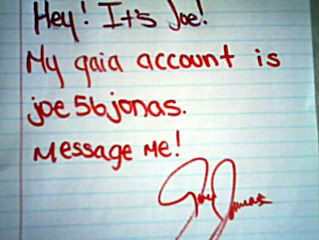 Hey! It's Joe!
My gaia account is
joe56jonas.
Message Me!
Joe Jonas